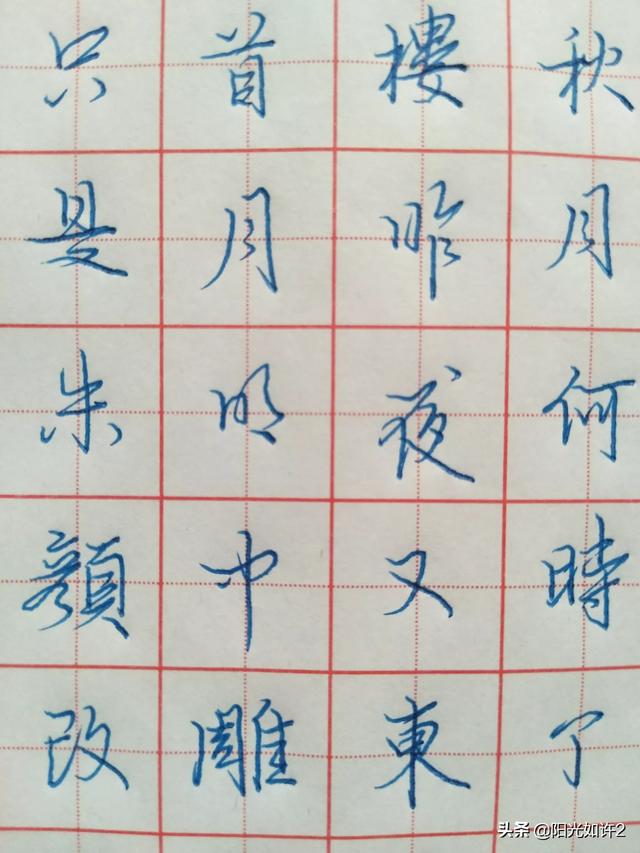 秋月何時了
樓昨夜又東
首月明中雕
只是朱顏改
头条 @阳光如许2